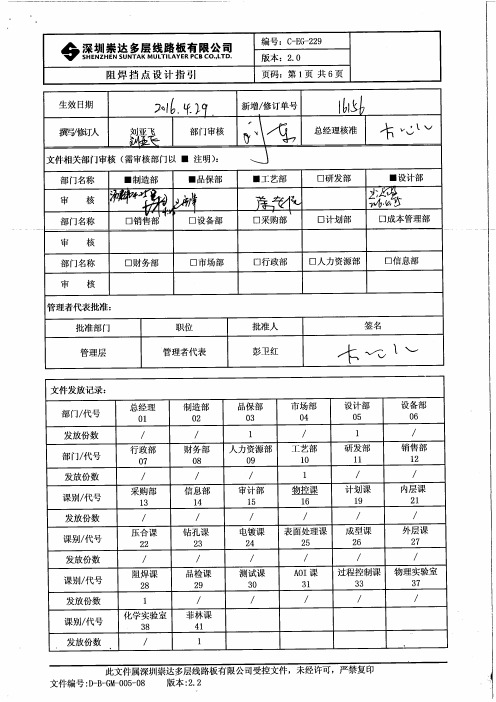 深圳崇达多层线路板有限公司
SHENZHEN SUNTAK MULTILAYER PCB CO.,LTD.
阻焊挡点设计指引
编号：C-EG-229
版本：2.0
页码：第1页 共6页
生效日期 2016.4.29 新增/修订单号 16156
撰写/修订人 刘亚飞 部门审核 总经理核准
文件相关部门审核（需审核部门以 ■ 注明）：
部门名称 ■制造部 ■品保部 ■工艺部 □研发部 ■设计部
审 核
部门名称 □销售部 □设备部 □采购部 □计划部 □成本管理部
审 核
部门名称 □财务部 □市场部 □行政部 □人力资源部 □信息部
审 核
管理者代表批准：
批准部门 职位 批准人 签名
管理层 管理者代表 彭卫红
文件发放记录：
部门/代号 总经理 01 制造部 02 品保部 03 市场部 04 设计部 05 设备部 06
发放份数 / / 1 / 1 /
部门/代号 行政部 07 财务部 08 人力资源部 09 工艺部 10 研发部 11 销售部 12
发放份数 / / / 1 / /
课别/代号 采购部 13 信息部 14 审计部 15 物控课 16 计划课 19 内层课 21
发放份数 / / / / / /
课别/代号 压合课 22 钻孔课 23 电镀课 24 表面处理课 25 成型课 26 外层课 27
发放份数 / / / / / /
课别/代号 阻焊课 28 品检课 29 测试课 30 AOI课 31 过程控制课 33 物理实验室 37
发放份数 1 / / / / /
课别/代号 化学实验室 38 菲林课 41
发放份数 / 1
此文件属深圳崇达多层线路板有限公司受控文件，未经许可，严禁复印
文件编号:D-B-GM-005-08 版本:2.2